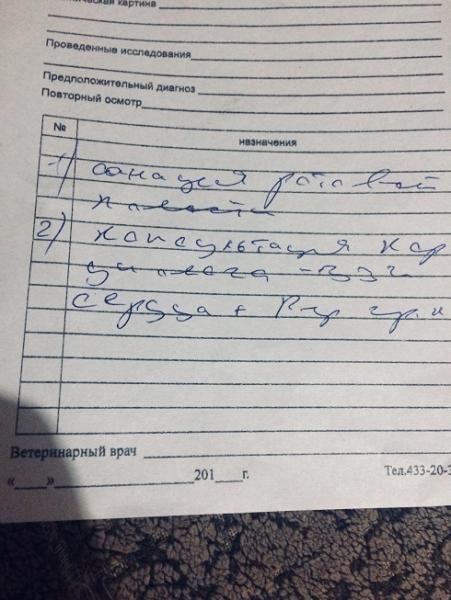 ическая картина
Проведенные исследования
Предположительный диагноз
Повторный осмотр
№ назначения
1) санация ротовой
полости
2) консультация кар
диолога - ЭЭГ
сердца +
Ветеринарный врач
«    » 201 г. Тел.433-20-3